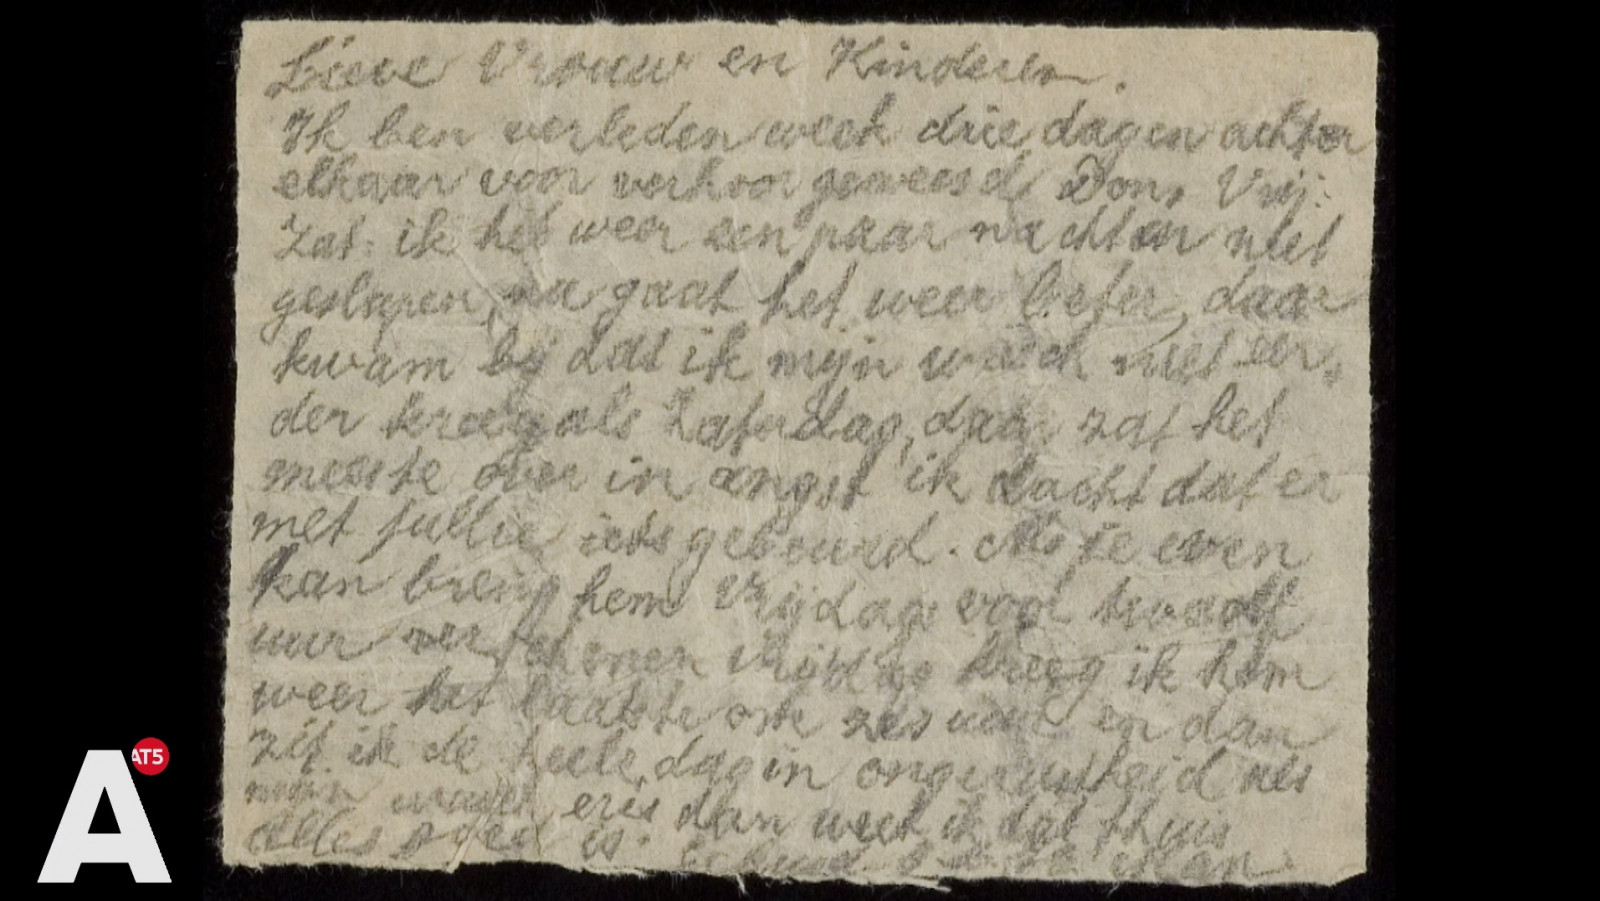 Lieve Vrouw en Kinderen.
Ik ben verleden week drie dagen achter
elkaar voor verhoor geweesd Don, Vrij:
Zat: ik heb weer een paar nachten niet
geslapen, nu gaat het weer beter, daar
kwam bij dat ik mijn wasch niet eer,
der kreeg als Zaterdag, daar zat het
meeste over in angst ik dacht dat er
met jullie iets gebeurd. Als je even
kan breng hem Vrijdags voor twaalf
uur Vrijdag kreeg ik hem
weer het laatste om zes uur en dan
zit ik de heele dag in ongerustheid als
mijn wasch er is dan weet ik dat thuis
alles goed is.
A
AT5